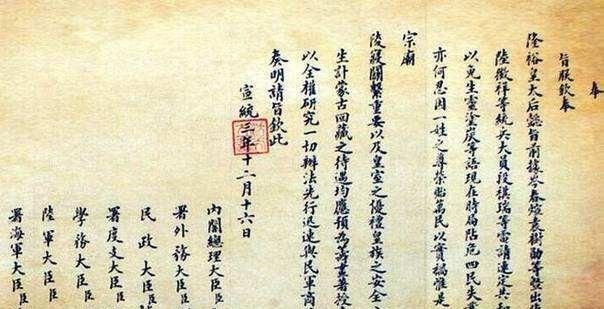 奉
旨朕欽奉
隆裕皇太后懿旨前據岑春煊袁樹勛等暨出使
陸徵祥等統兵大員段祺瑞等電請速定共和
以免生靈塗炭等語現在時局阽危四民失業
亦何忍因一姓之尊榮貽萬民以實禍惟是
宗廟
陵寢關繫重要以及皇室之優禮皇族之安全
生計蒙古回藏之待遇均應預為籌畫著授
以全權研究一切辦法先行迅速與民軍商
奏明請旨欽此
宣統三年十二月十六日
內閣總理大臣
署外務大臣臣
署度支大臣臣
民政大臣
學務大臣臣
陸軍大臣臣
署海軍大臣臣